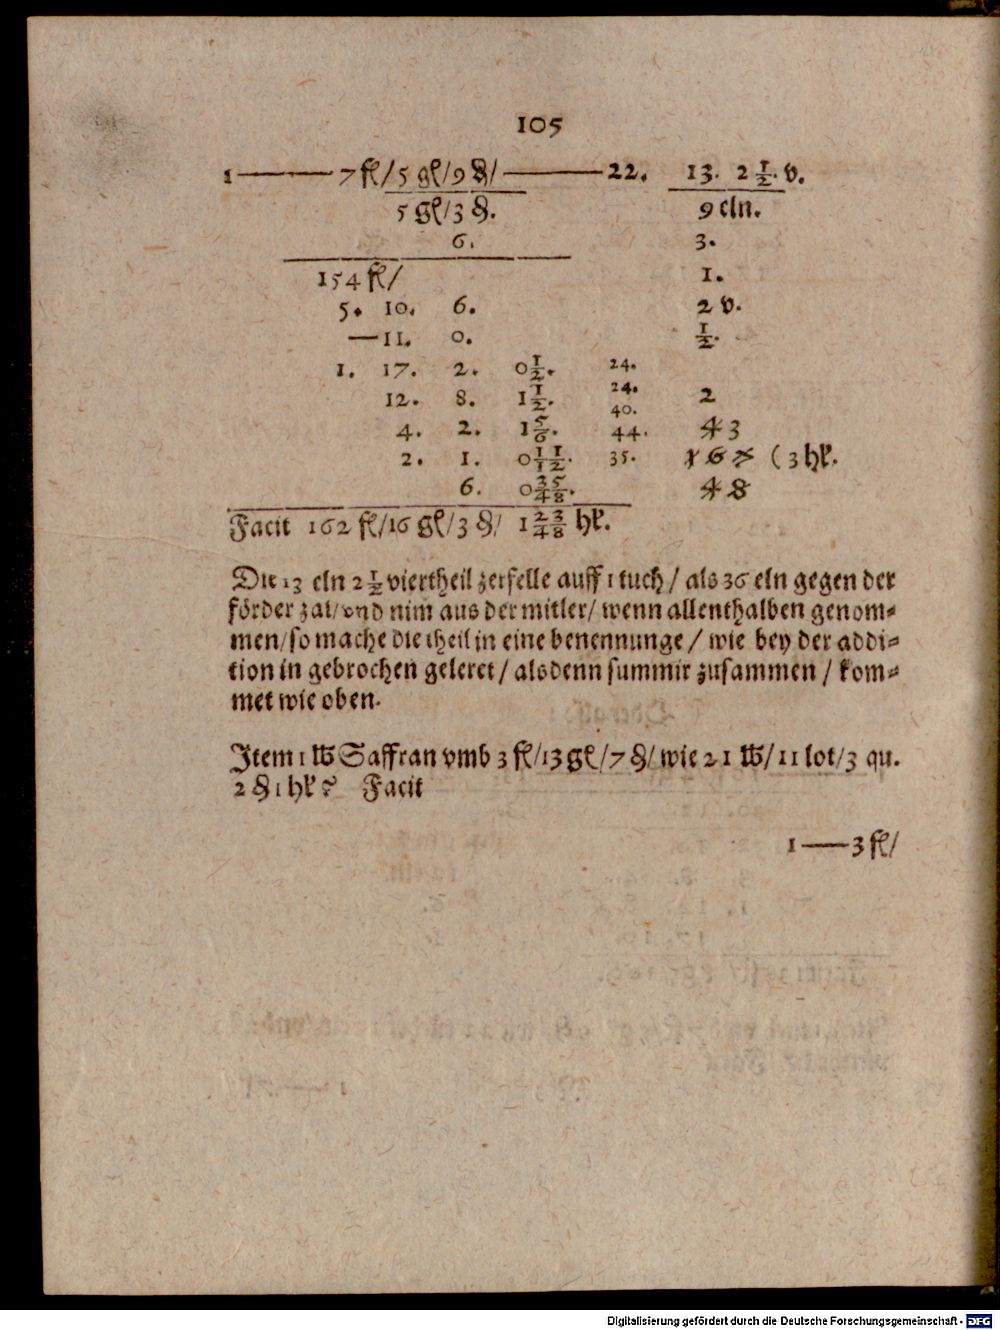 105
1 ——— 7 fl/ 5 gl/ 9 ₰/ ——— 22. 13. 2 1/2. v.
5 gl/ 3 ₰. 9 eln.
6. 3.
154 fl/ 1.
5. 10. 6. 2 v.
— 11. 0. 1/2.
1. 17. 2. 0 1/2. 24.
12. 8. 1 1/2. 24. 2
40.
4. 2. 1 5/6. 44. 4 3
2. 1. 0 11/12. 35. 1 6 7 ( 3 hl.
6. 0 35/48. 4 8
Facit 162 fl/ 16 gl/ 3 ₰/ 1 23/48 hl.
Die 13 eln 2 1/2 viertheil zerfelle auff 1 tuch / als 36 eln gegen der
förder zal/ vnd nim aus der mitler/ wenn allenthalben genom⸗
men/ so mache die theil in eine benennunge / wie bey der addi⸗
tion in gebrochen geleret / alsdenn summir zusammen / kom⸗
met wie oben.
Item 1 ℔ Saffran vmb 3 fl/ 13 gl/ 7 ₰/ wie 21 ℔/ 11 lot/ 3 qu.
2 ₰ 1 hl? Facit
1 —— 3 fl/
Digitalisierung gefördert durch die Deutsche Forschungsgemeinschaft - DFG